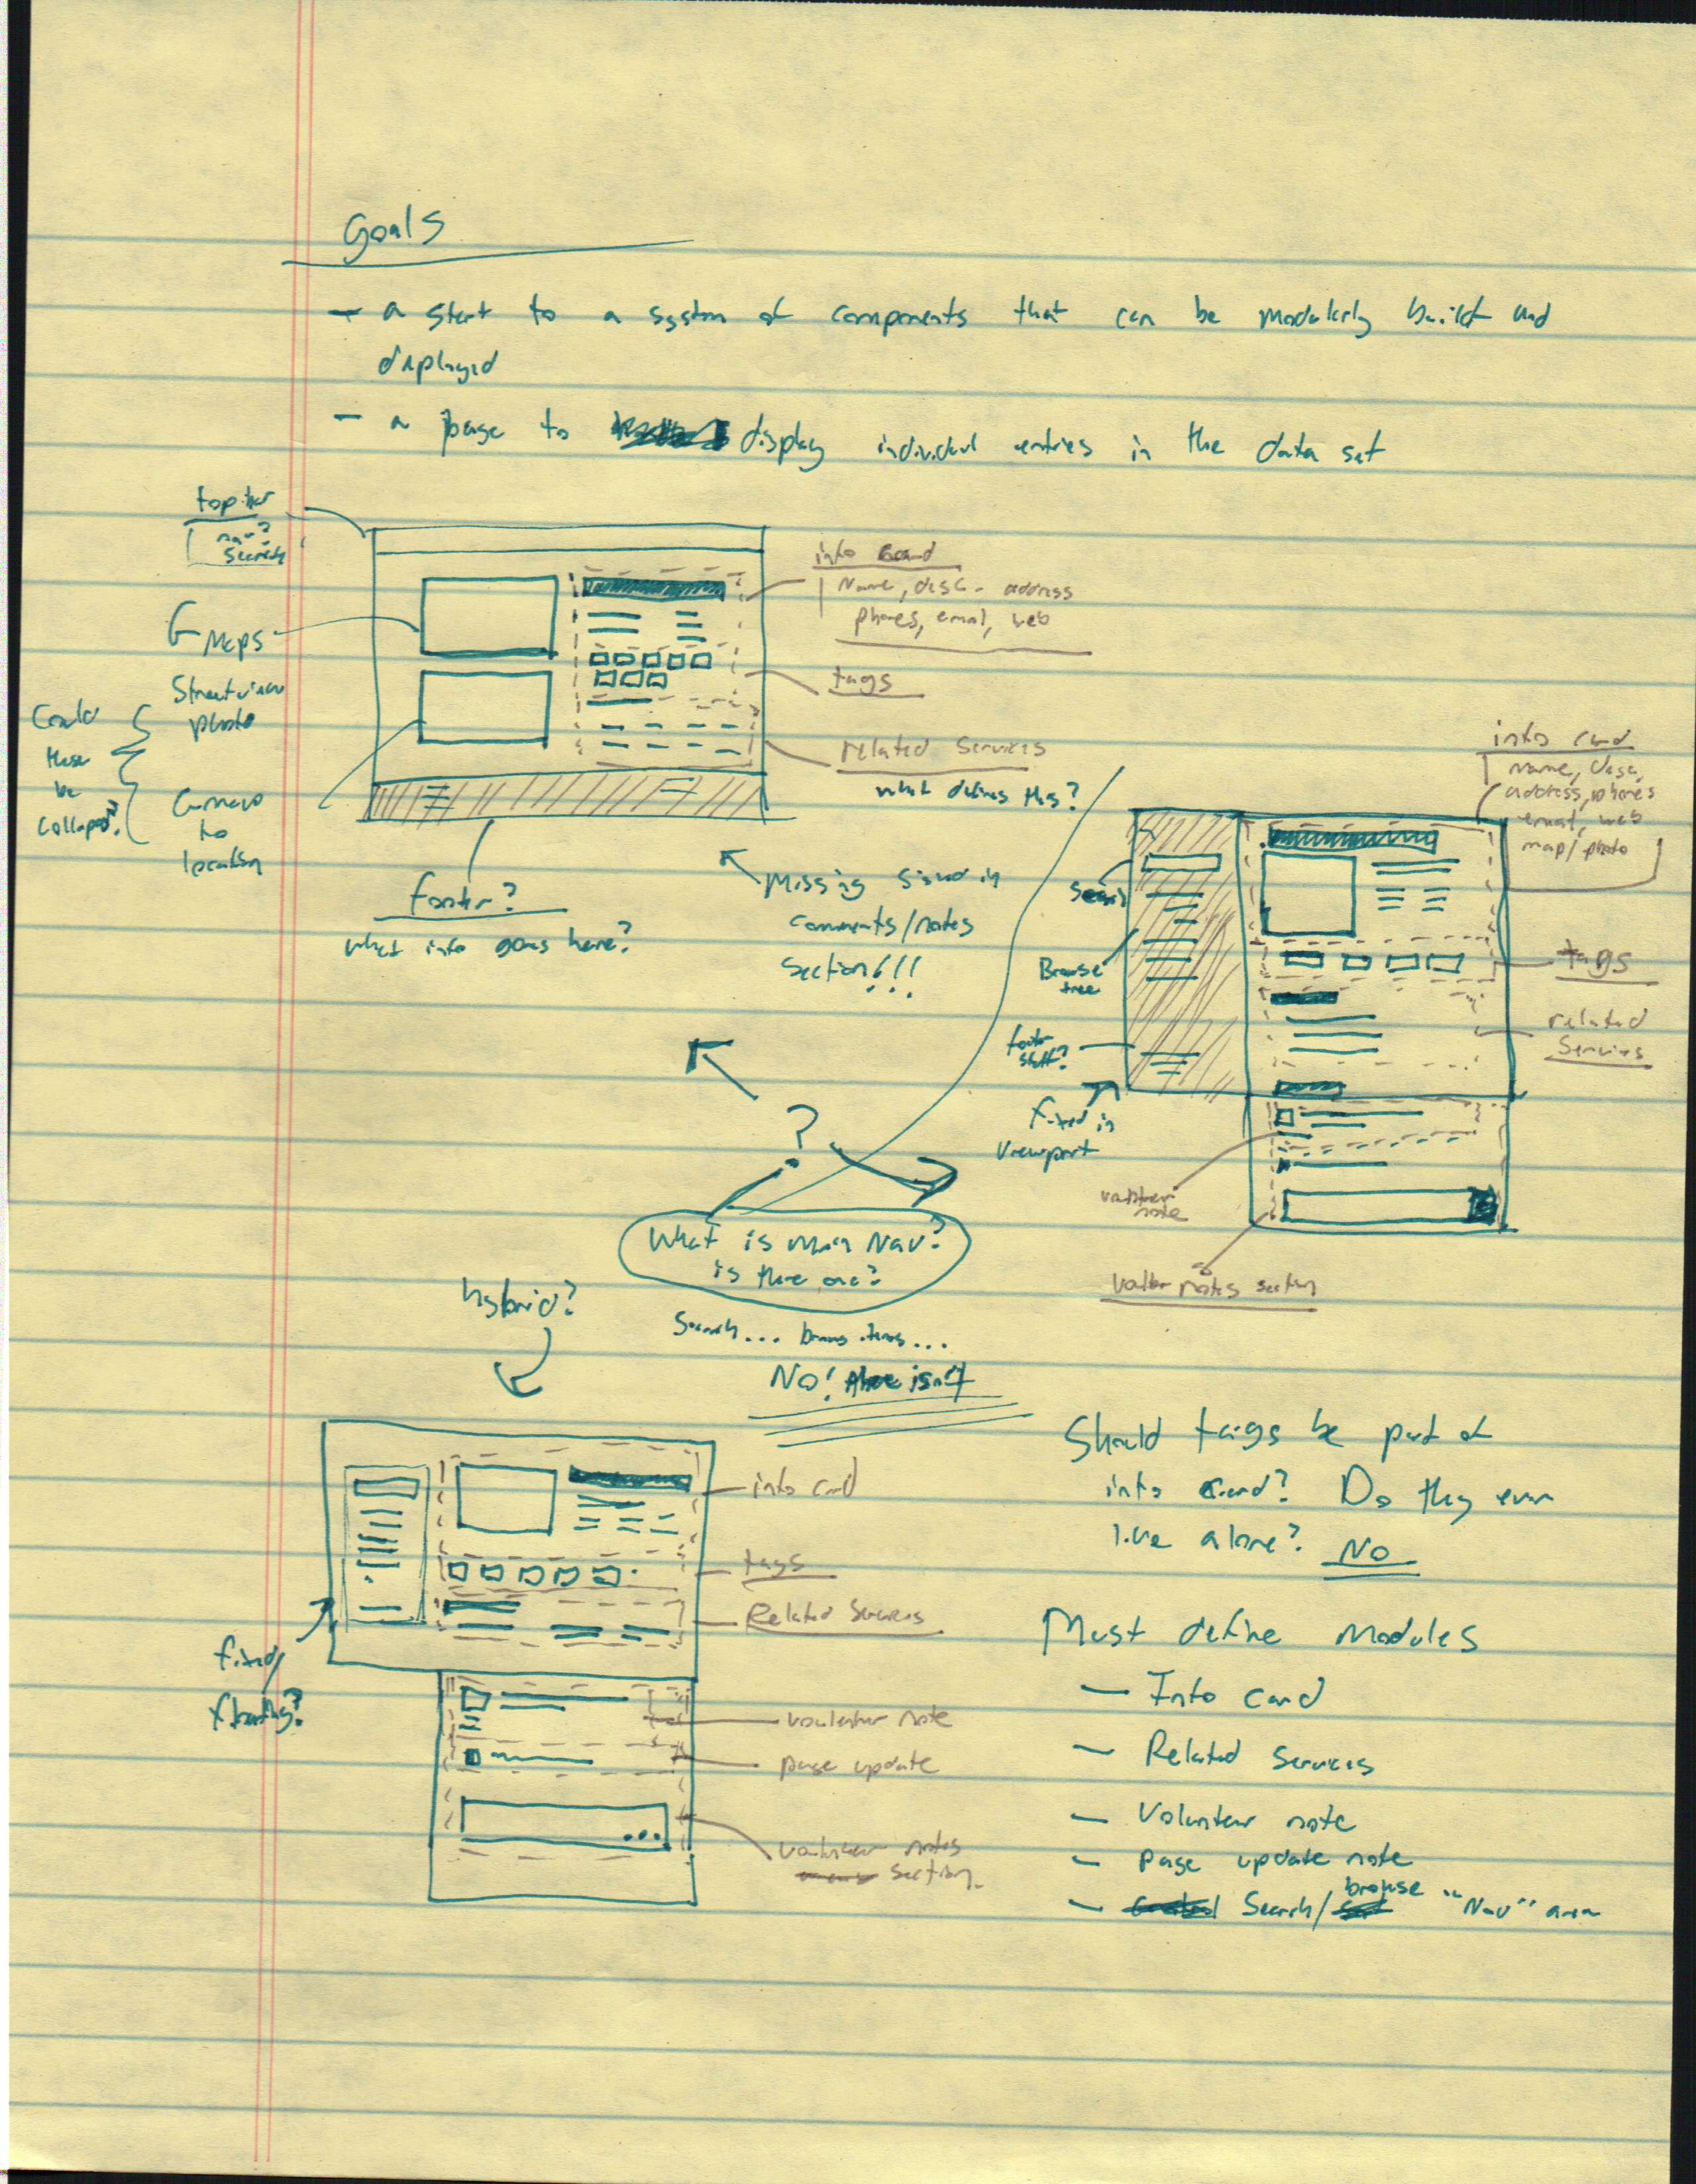 Goals
- a start to a system of components that can be modularly built and
displayed
- a page to display individual entries in the data set
top bar
nav?
search
G Maps
Streetview
photo
Could
these
be
collapsed?
Camera
to
location
info card
Name, desc - address
phones, email, web
tags
related services
what defines this?
footer?
what info goes here?
Missing signed in
comments/notes
section!!!
info card
name, desc,
address, phones
email, web
map/photo
Search
Browse
tree
footer
stuff?
fixed in
viewport
tags
related
services
volunteer
note
notes section
?
What is main Nav?
is there one?
Search... browse items...
No! there isn't
hybrid?
info card
tags
Related Services
fixed/
floating?
volunteer note
page update
volunteer notes
section.
Should tags be part of
info card? Do they ever
live alone? No
Must define modules
- Info card
- Related services
- Volunteer note
- page update note
- Search/browse "Nav" area